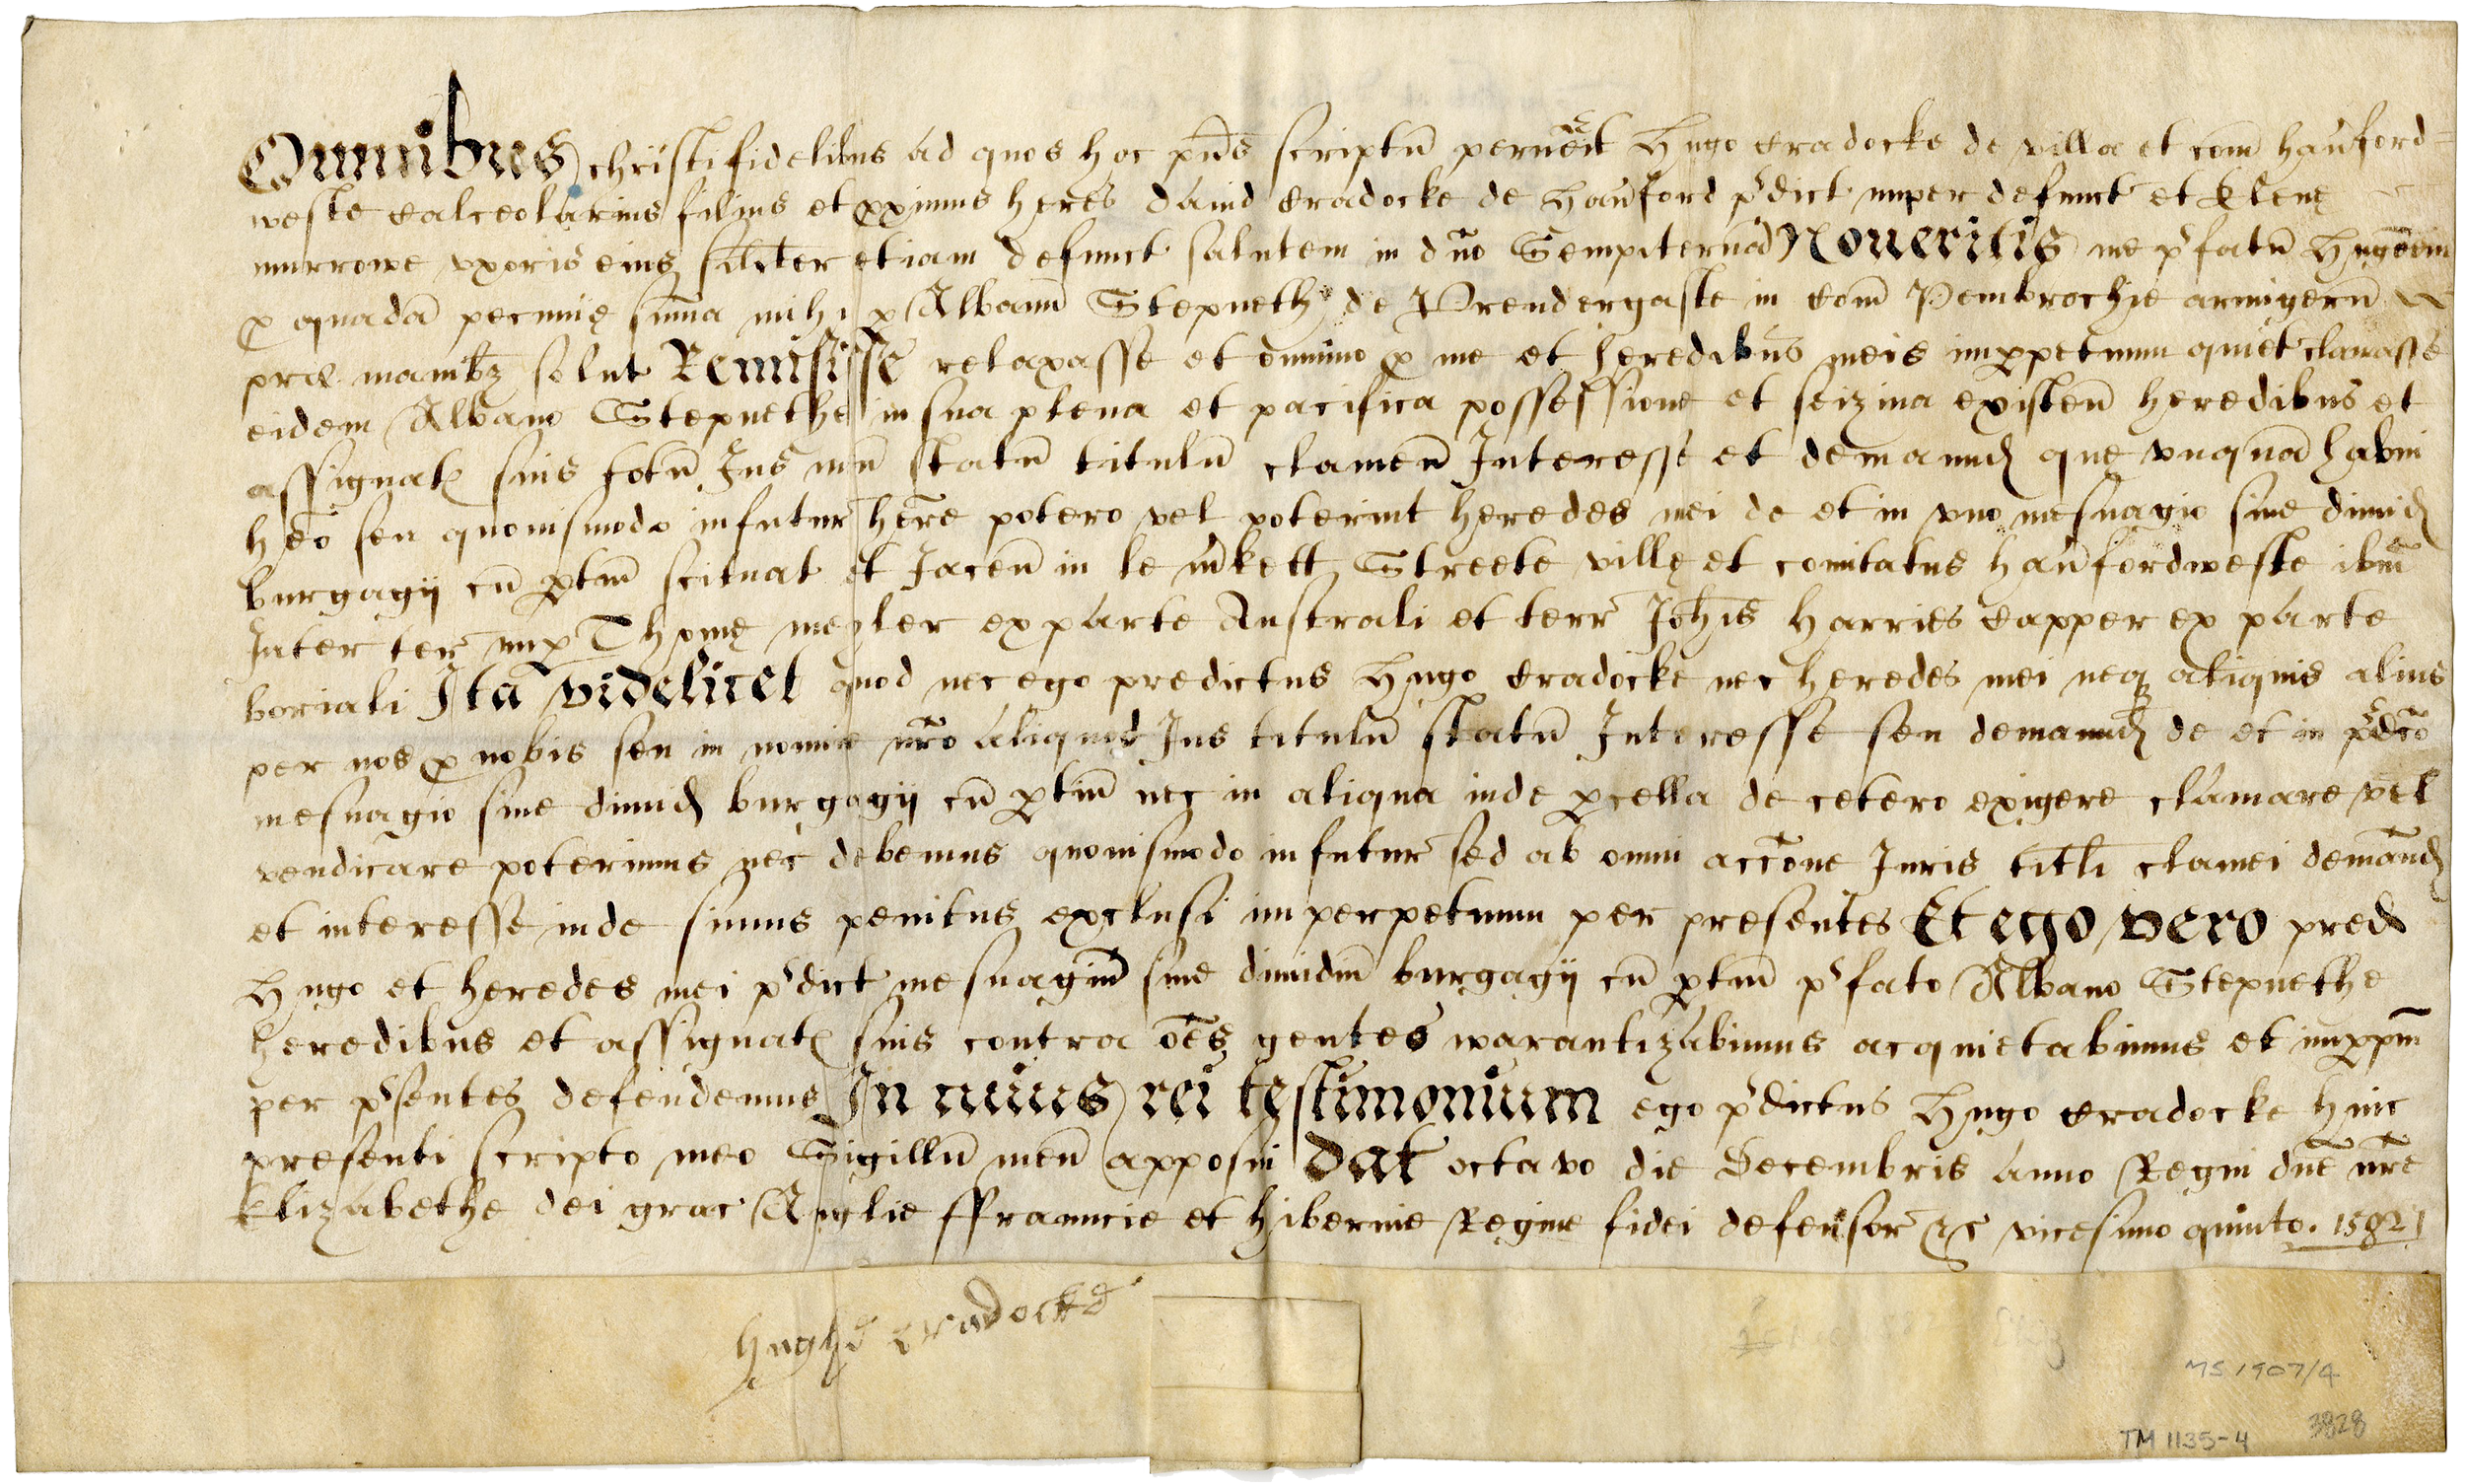 Omnibus christifidelibus ad quos hoc pn̄s scriptū peruēit Hugo Cradocke de villa et com̄ hau̅ford=
weste calceolarius filius et ꝓximus heres dauid Cradocke de Hau̅ford p̄dict nuper defunct et Elenę
murrowe vxoris eius silīter etiam defunct salutem in dn̄o Sempiternā Noueritis me p̄fatū Hugōem
ꝓ quadā pecunię sūma mihi ꝑ Albanū Stepneth de Prendergaste in Com̄ Pembrochie armigerū
pre manibꝫ solut Remisisse relaxasse et omnino ꝓ me et heredibus meis imꝑpetuum quiet clamasse
eidem Albano Stepnethe in sua plena et pacifica possessione et seizina existen̄ heredibus et
assignatꝭ suis totū Jus meū statū titulū clameū Interesse et demaund que vnquā habui
hēo seu quouismodo infutur̄ hēre potero vel poterint heredes mei de et in vno mesuagio siue dimid
burgagij cū ꝑtiñ scituat et Jaceñ in le m̄kett Streete villę et comitatus hau̅fordweste ibm̄
Inter terr̄ nuꝑ Thomę meyler ex parte Australi et terr̄ Joh̄is Harries Capper ex parte
boriali Ita videlicet quod nec ego predictus Hugo Cradocke nec heredes mei neqꝫ aliquis alius
per nos ꝓ nobis seu in nomie nr̄o aliquid Jus titulū statū Interesse seu demaund de et in p̄dc̄o
mesuagio siue dimid burgagij cū ꝑtiñ nec in aliqua inde ꝑcella de cetero exigere clamare vel
vendicare poterimus nec debemus quouismodo infutur̄ sed ab omni acc̄one Juris titli clamei demānd
et interesse inde simus penitus exclusi imperpetuum per presentes Et ego vero pred
Hugo et heredes mei p̄dict mesuagiū siue dimidiū burgagij cū ꝑtiñ p̄fato Albano Stepnethe
heredibus et assignatꝭ suis contra ōēs gentes warantizabimus acquietabimus et imꝑpm̄
per p̄sentes defendemus In cuius rei testimonium ego p̄dictus Hugo Cradocke huic
presenti scripto meo Sigillū meū apposui Dat octavo die Decembris anno Regni dn̄e nr̄e
Elizabethe dei grac Anglie ffrauncie et hibernie Regine fidei defensor̄ &c vicesimo quinto. 1582
hughe cradocke
MS 1907/4
3828
TM 1135-4